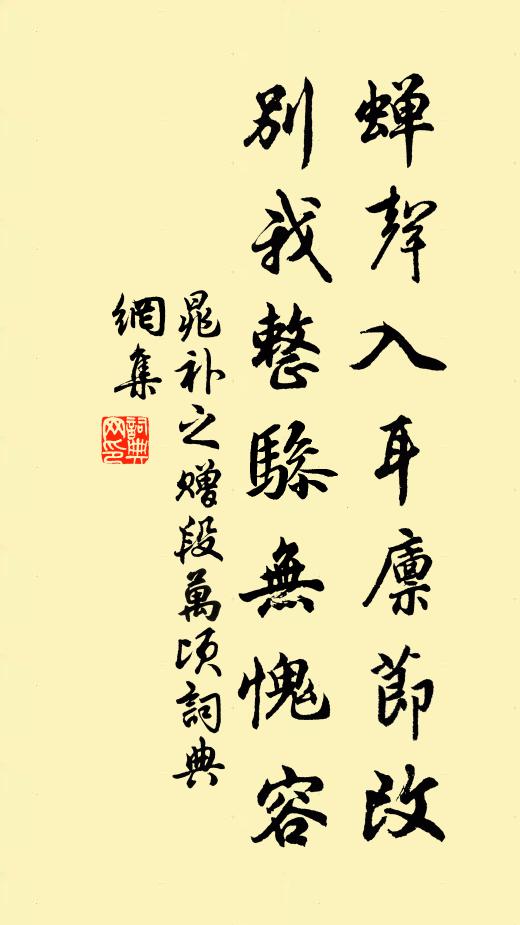 蟬聲入耳廩節改
別我整驂無愧容
晁補之贈段萬頃詞典
網集
詞典
网印